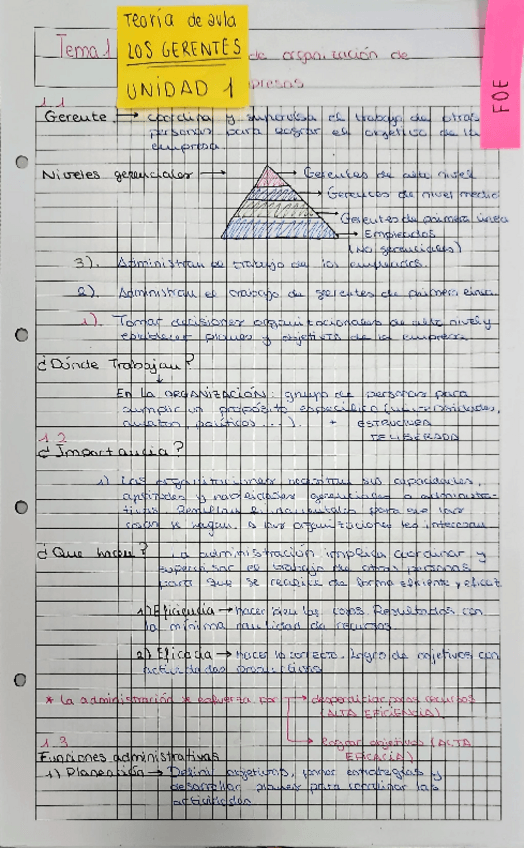 Teoría de aula
LOS GERENTES
UNIDAD 1
FOE
Tema 1 de organización de
presas
1.1
Gerente → coordina y supervisa el trabajo de otras
personas para lograr el objetivo de la
empresa
Niveles gerenciales → Gerentes de alto nivel
Gerentes de nivel medio
Gerentes de primera línea
Empleados
(No gerenciales)
3). Administran el trabajo de los empleados.
2). Administran el trabajo de gerentes de primera línea
1). Tomar decisiones organizacionales de alto nivel y
establecer planes y objetivos de la empresa
¿Dónde Trabajan?
En la ORGANIZACIÓN: grupo de personas para
cumplir un propósito específico (universidades,
políticos...). + ESTRUCTURA
DELIBERADA
1.2
¿Importancia?
1) Las organizaciones necesitan sus capacidades,
aptitudes y habilidades gerenciales o administra-
tivas. Resultan para que las
cosas se hagan, a las organizaciones les interesan
¿Que hacen? La administración implica coordinar y
supervisar el trabajo de otras personas
para que se realice de forma eficiente y eficaz
1) Eficiencia → hacer bien las cosas. Resultados con
la mínima cantidad de recursos
2) Eficacia → hacer lo correcto. Logro de objetivos con
actividades productivas
* La administración se esfuerza por → desperdiciar pocos recursos
(ALTA EFICIENCIA)
→ lograr objetivos (ALTA
EFICACIA)
1.3
Funciones administrativas
1) Planeación → Definir objetivos, poner estrategias y
desarrollar planes para coordinar las
actividades